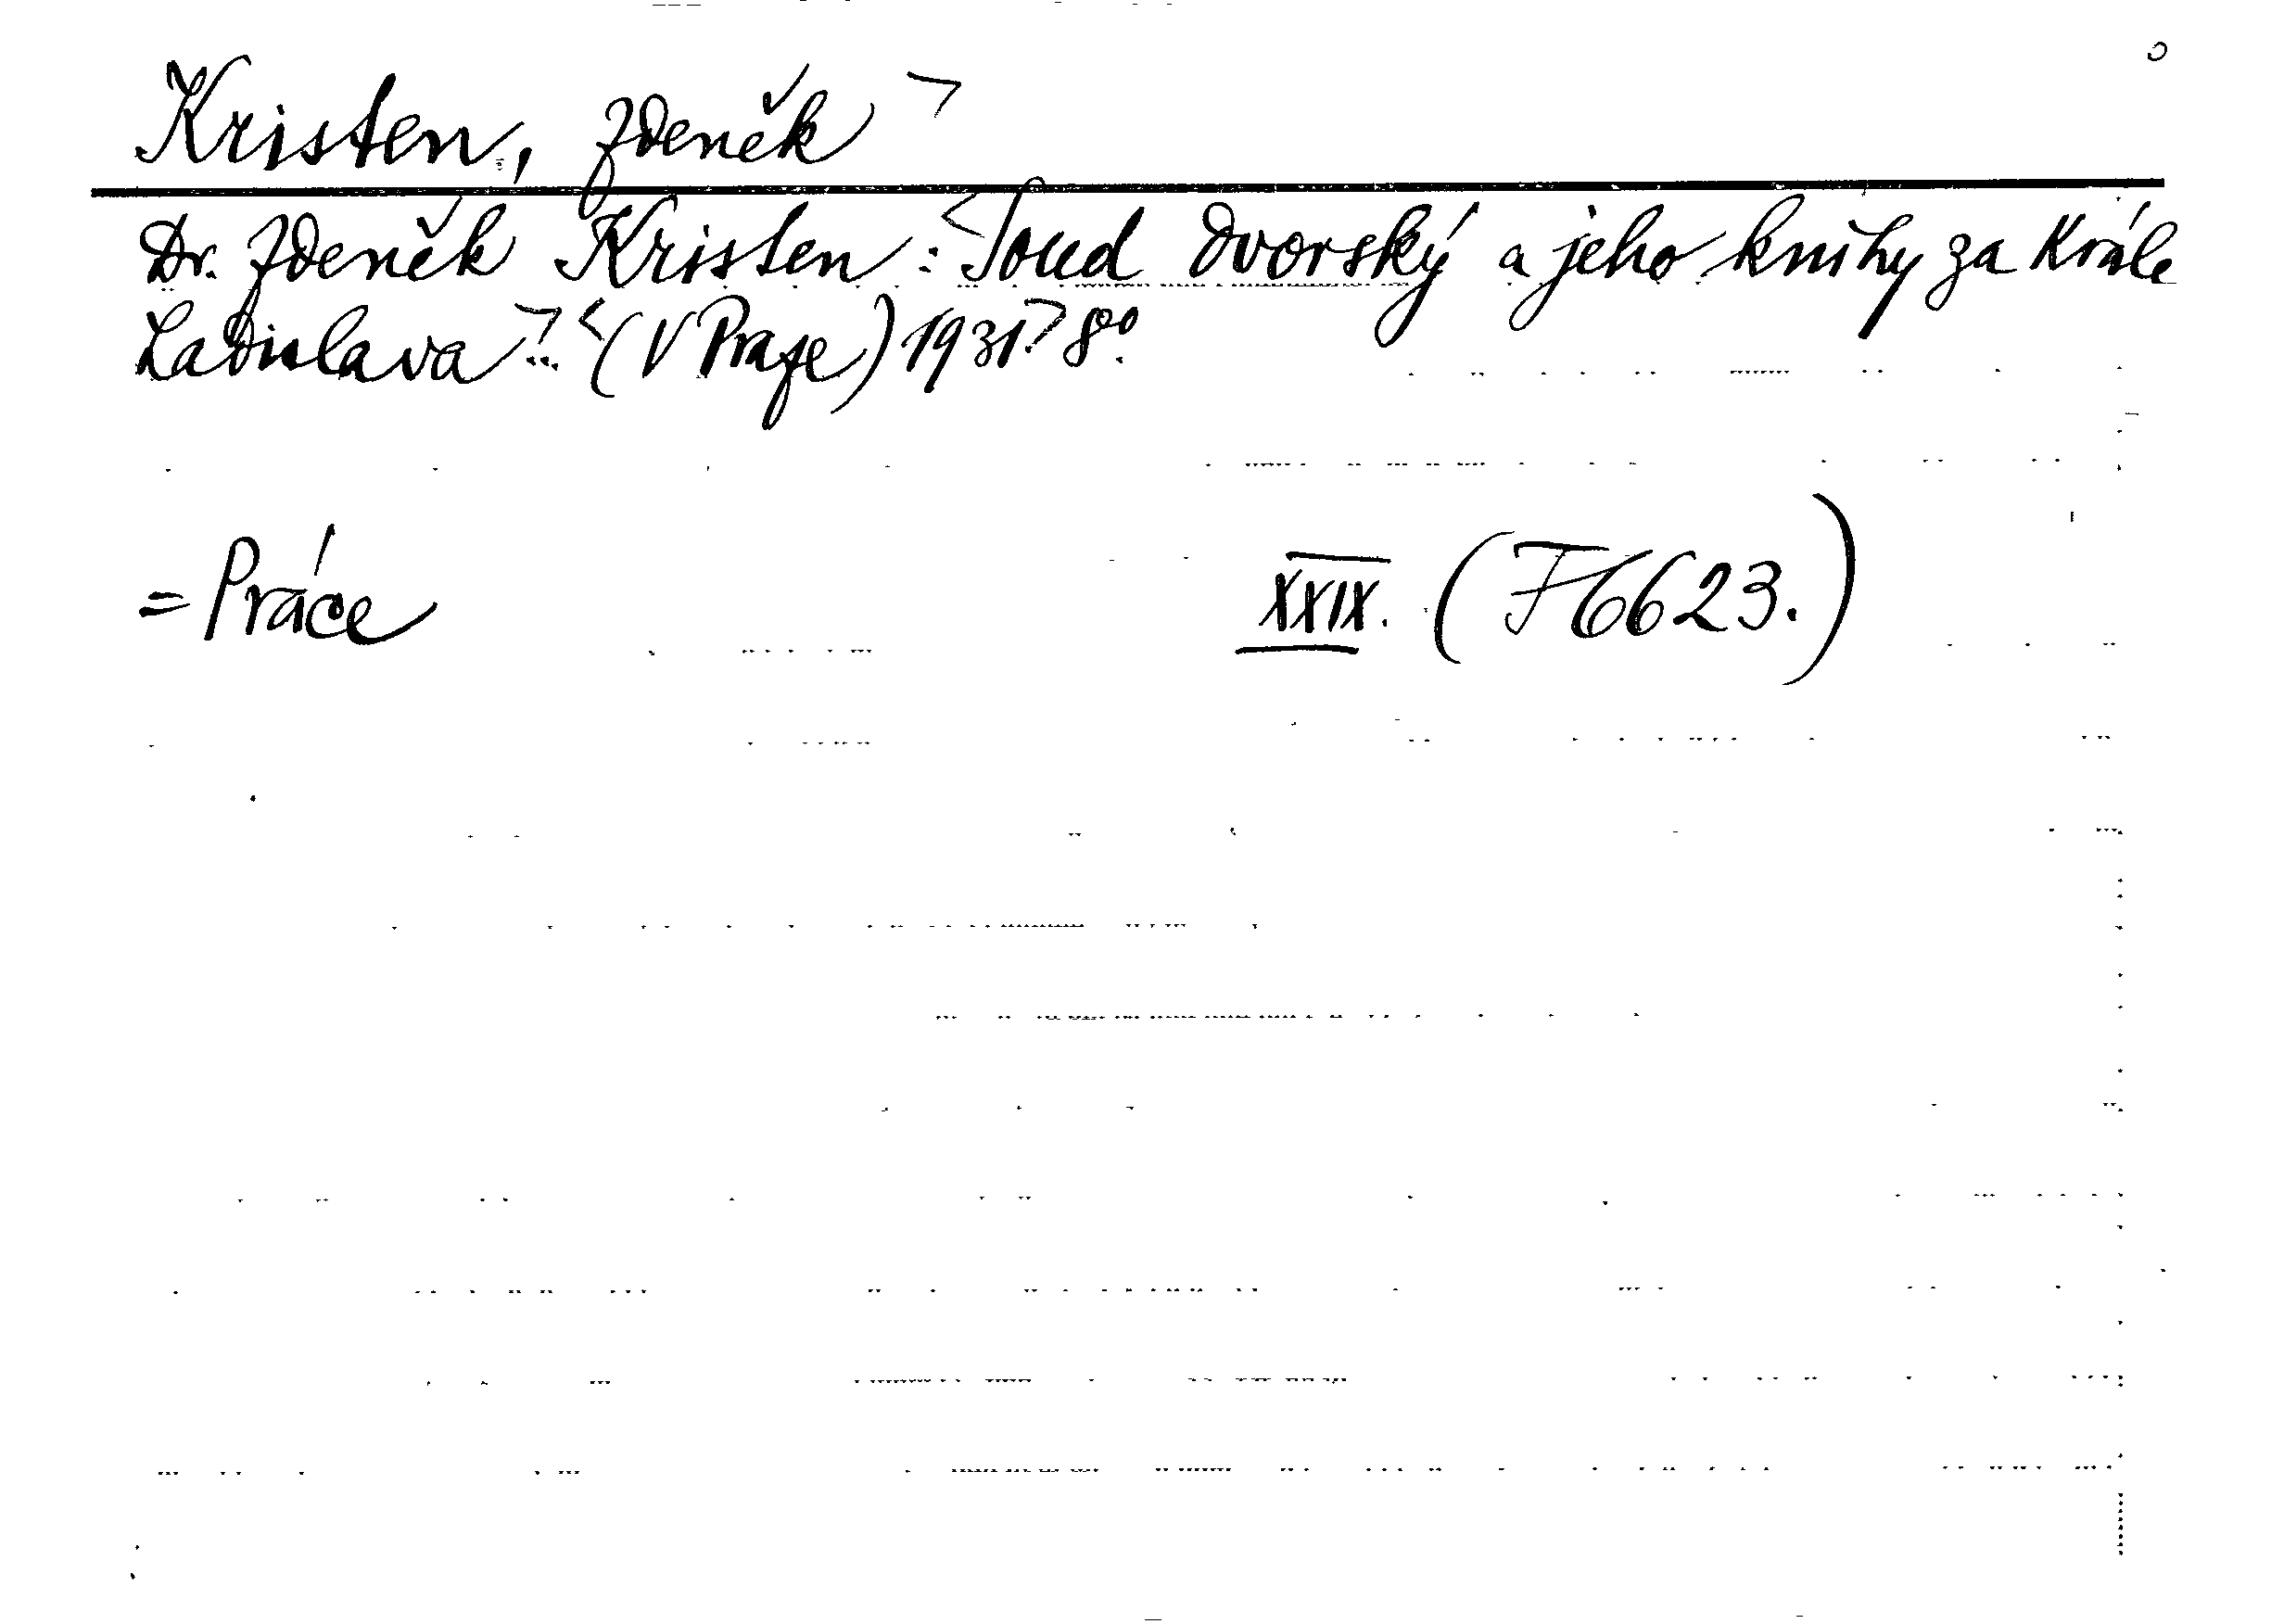 Kristen, Zdeněk
Dr. Zdeněk Kristen: Soud dvorský a jeho knihy za Krále
Ladislava... (V Praze) 1931. 8°.
= Práce XXIX. (F 6623.)